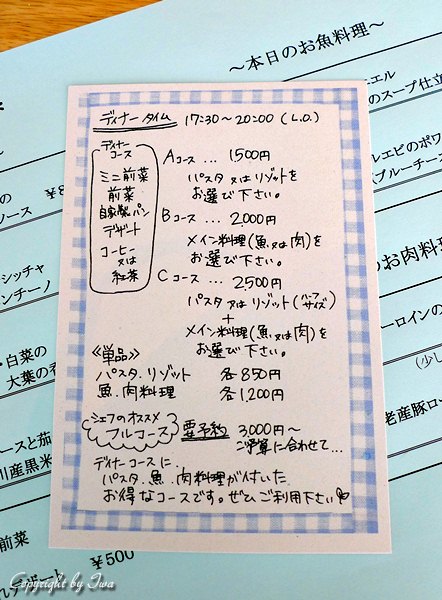 ～本日のお魚料理～
ディナータイム 17:30～20:00 (L.O.)
ディナーコース
ミニ前菜
前菜
自家製パン
デザート
コーヒー
又は
紅茶
Aコース … 1500円
パスタ又はリゾットを
お選び下さい。
Bコース … 2,000円
メイン料理(魚又は肉)を
お選び下さい。
Cコース … 2,500円
パスタ又はリゾット(ハーフサイズ)
+
メイン料理(魚又は肉)を
お選び下さい。
≪単品≫
パスタ、リゾット 各850円
魚、肉料理 各1,200円
シェフのオススメ
フルコース 要予約 3,000円～
ご予算に合わせて…
ディナーコースに
パスタ、魚、肉料理が付いた
お得なコースです。ぜひご利用下さい
エル
のスープ仕立
ルエビのポワ
(ブルーチー
のお肉料理
ーロインの
(少し
老産豚ロー
ソース
シッチャ
ンチーノ
・白菜の
大葉の
ースと茄
川産黒米
前菜
¥500
デザート
Copyright by Iwa